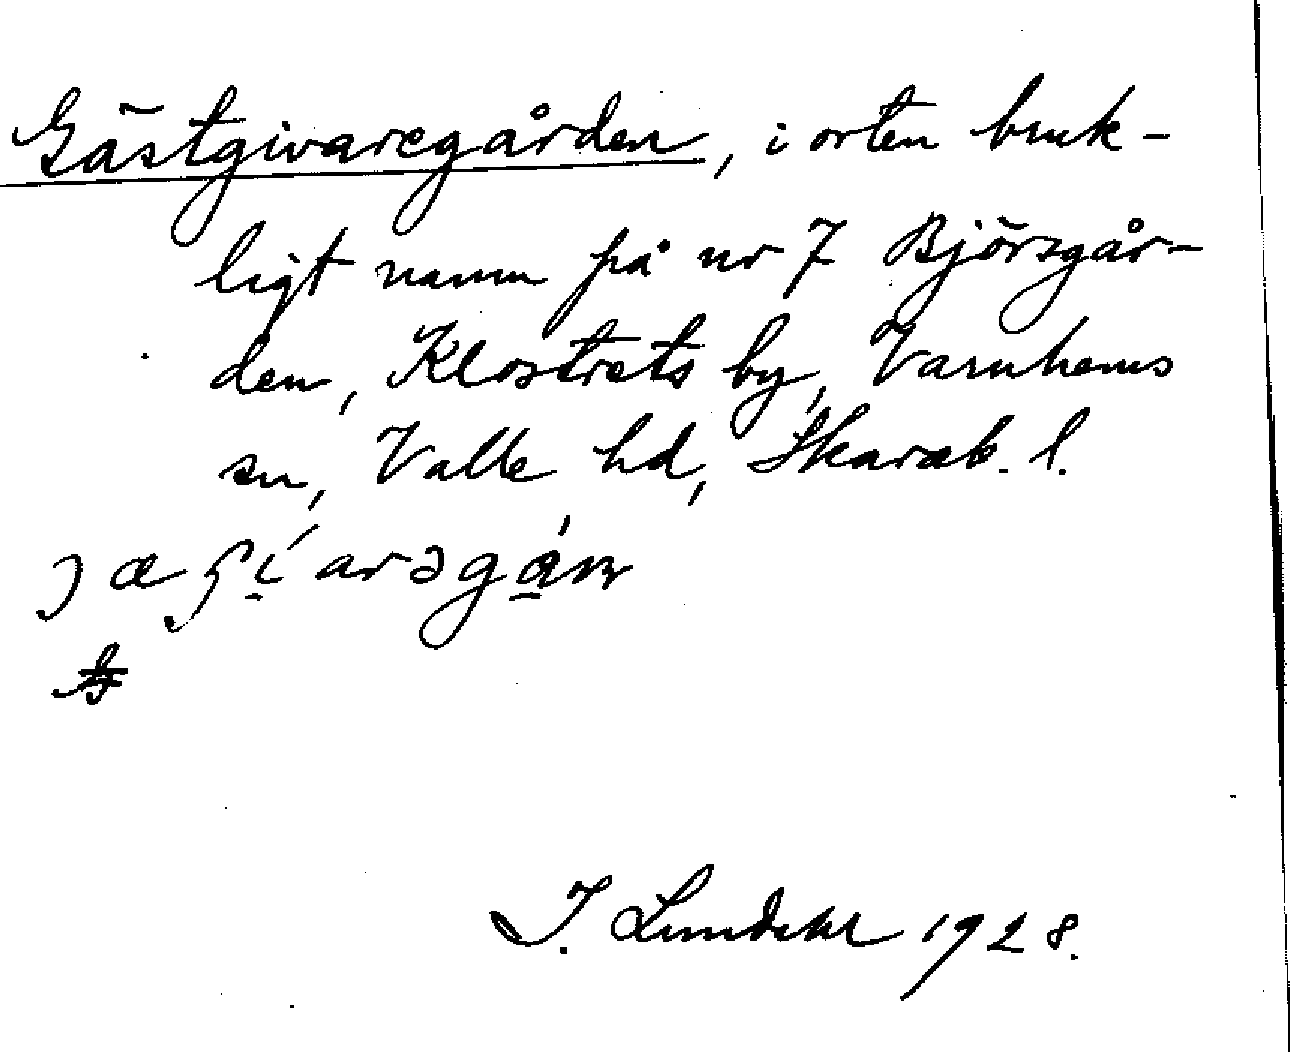 Gästgivaregården, i orten bruk-
ligt namn på nr 7 Björsgår-
den, Klostrets by, Varnhems
sn, Valle hd, Skarab. l.
I. Lundahl 1928.